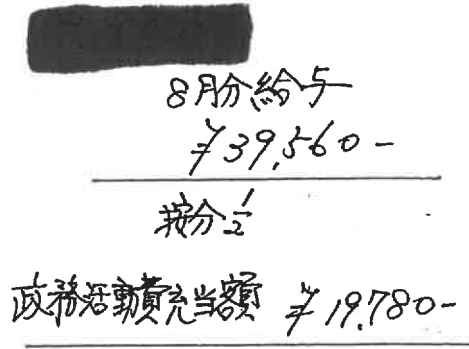 8月分給与
¥39,560-
按分1/2
政務活動費充当額 ¥19,780-